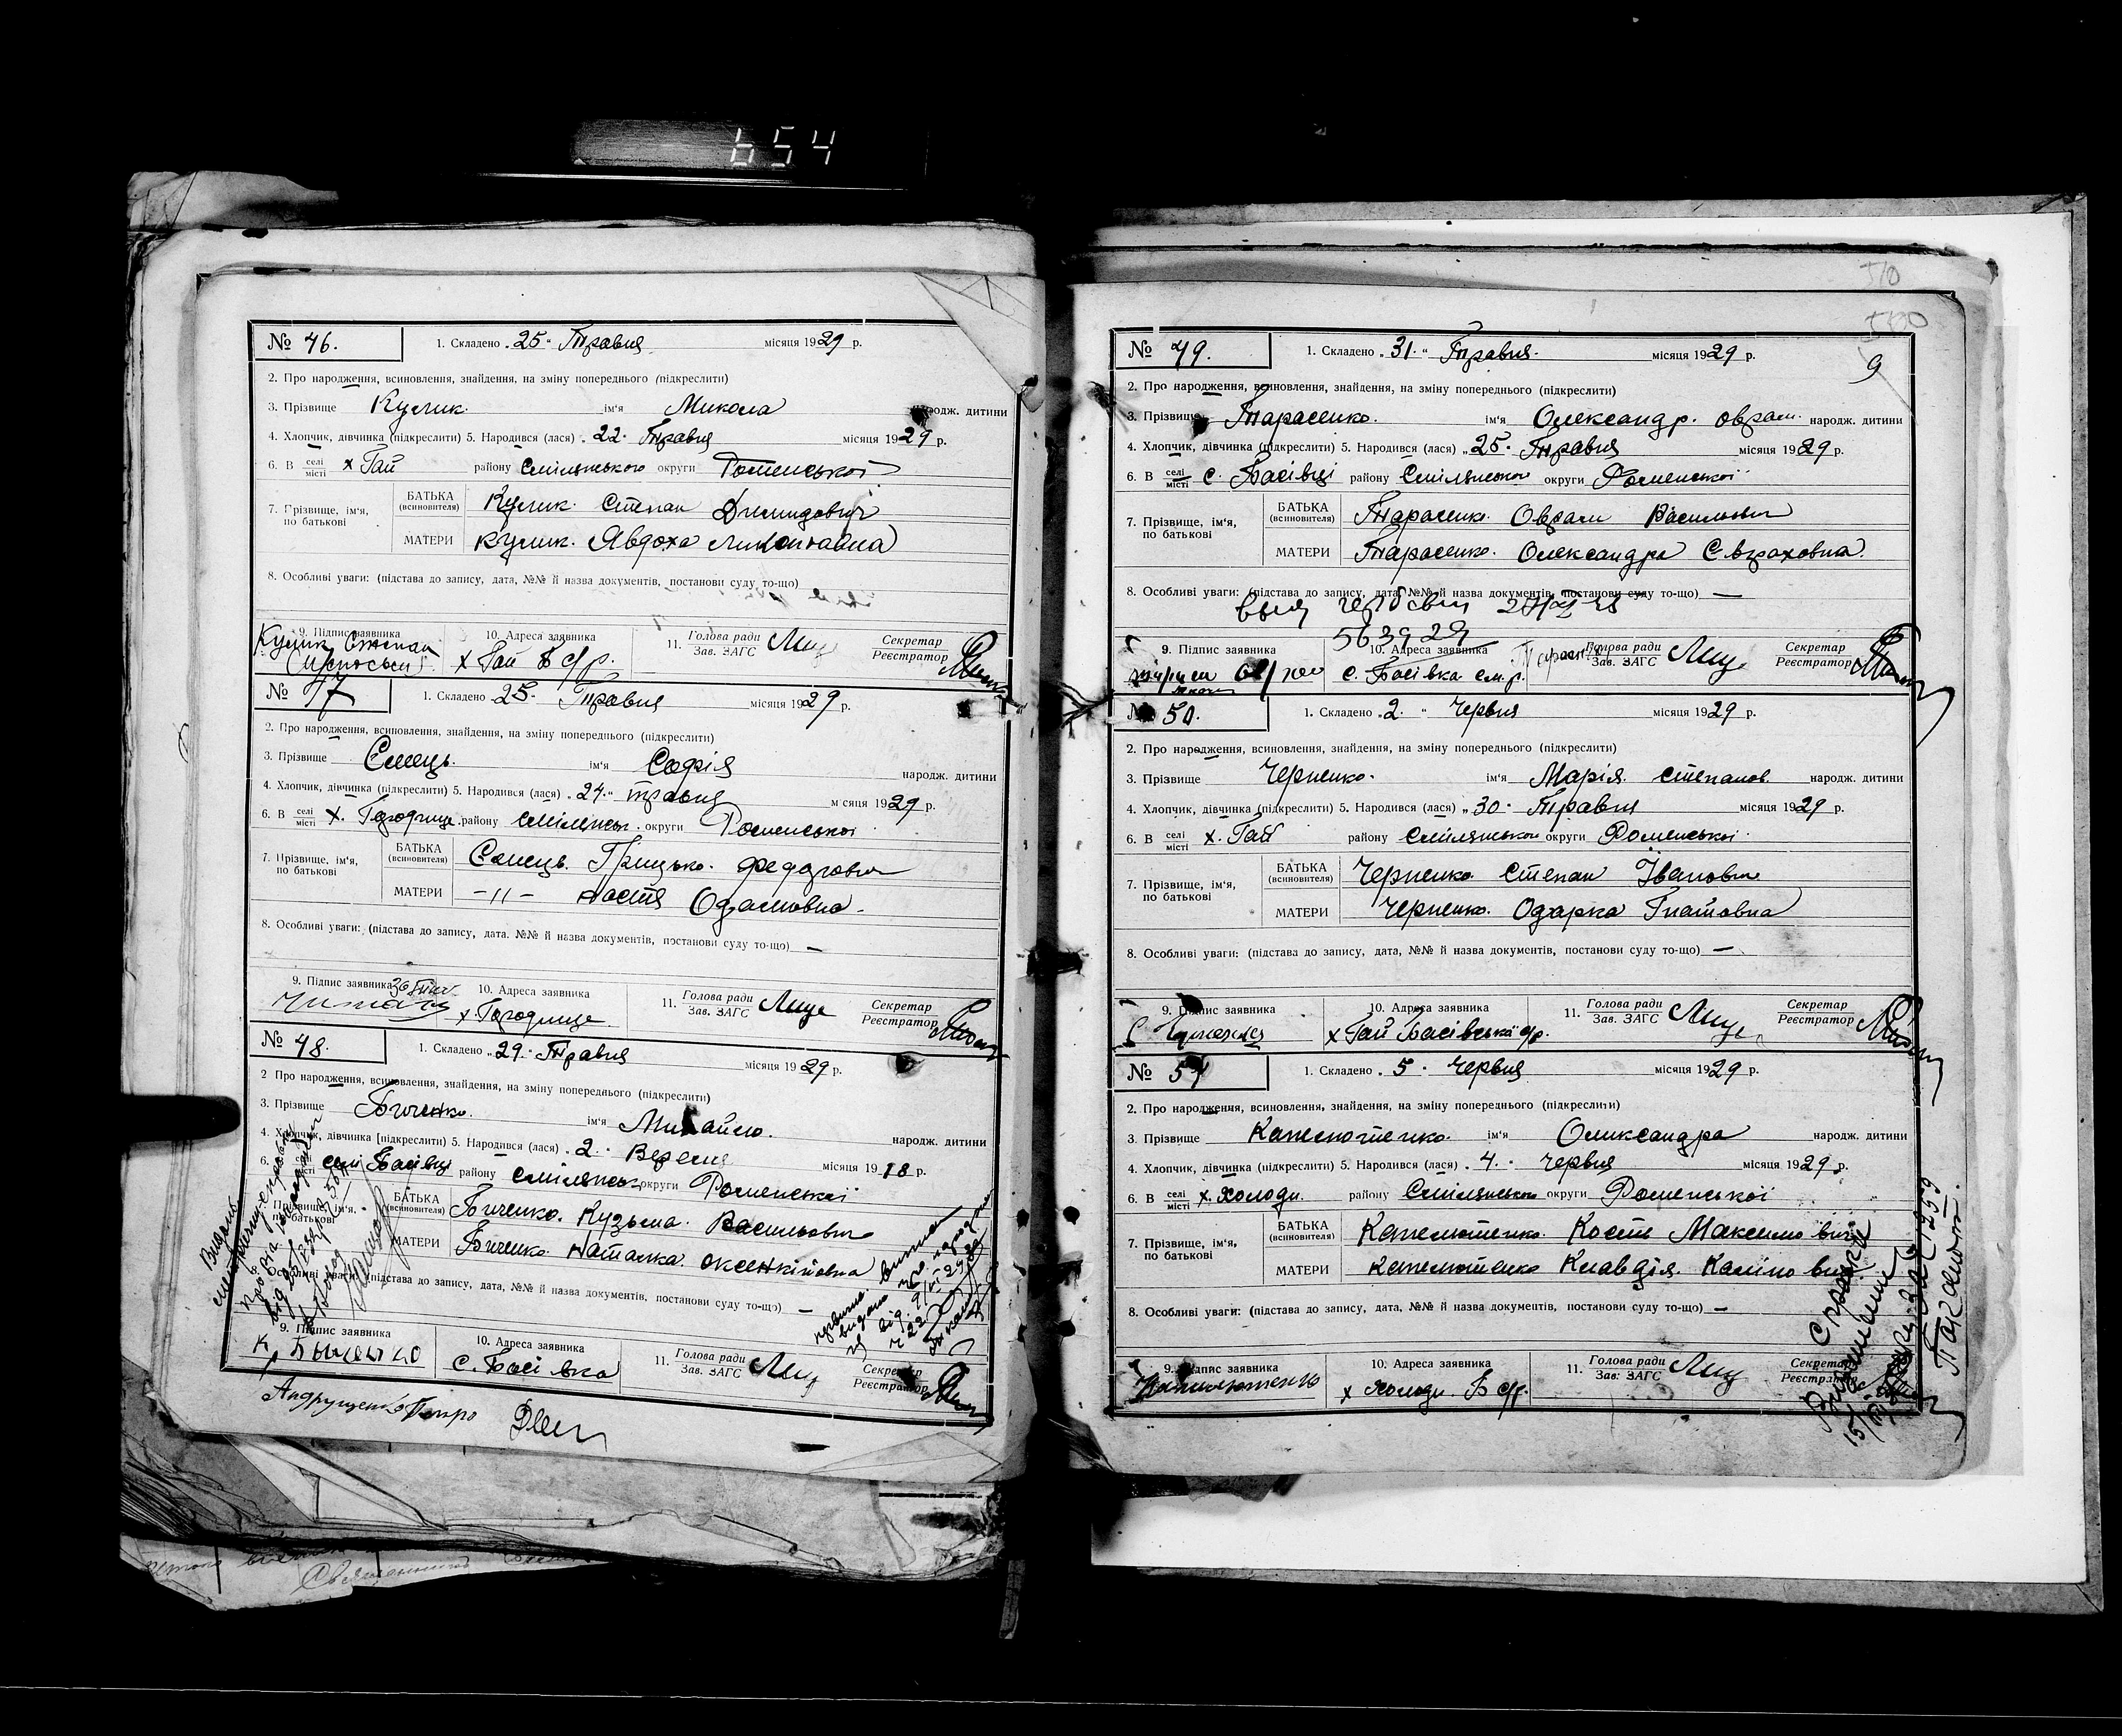 654
№ 46. 1. Складено „25“ Травня місяця 1929 р.
2. Про народження, всиновлення, знайдення, на зміну попереднього (підкреслити)
3. Прізвище Кулик ім'я Микола народж. дитини
4. Хлопчик, дівчинка (підкреслити) 5. Народився (лася) „22“ Травня місяця 1929 р.
6. В селі місті х Гай району Смілянського округи Роменської
7. Прізвище, ім'я, по батькові БАТЬКА (всиновителя) Кулик Степан Демидович
МАТЕРИ Кулик Явдоха
8. Особливі уваги: (підстава до запису, дата, №№ й назва документів, постанови суду то-що)
9. Підпис заявника Кулик Степан 10. Адреса заявника х Гай Б с/р. 11. Голова ради Зав. ЗАГС Секретар Реєстратор
№ 47 1. Складено „25“ Травня місяця 1929 р.
2. Про народження, всиновлення, знайдення, на зміну попереднього (підкреслити)
3. Прізвище Ємець ім'я Софія народж. дитини
4. Хлопчик, дівчинка (підкреслити) 5. Народився (лася) „24“ травня місяця 1929 р.
6. В селі місті х. Городище району Смілянськ. округи Роменської
7. Прізвище, ім'я, по батькові БАТЬКА (всиновителя) Ємець Грицько Федорович
МАТЕРИ –//– Настя Одамовна
8. Особливі уваги: (підстава до запису, дата, №№ й назва документів, постанови суду то-що) —
9. Підпис заявника 10. Адреса заявника х Городище 11. Голова ради Зав. ЗАГС Секретар Реєстратор
№ 48. 1. Складено „29“ Травня місяця 1929 р.
2 Про народження, всиновлення, знайдення, на зміну попереднього (підкреслити)
3. Прізвище Биченко ім'я Михайло народж. дитини
4. Хлопчик, дівчинка [підкреслити) 5. Народився (лася) „2“ Вересня місяця 1918 р.
6. селі місті селі Басівці району Смілянськ округи Роменської
7. Прізвище, ім'я, по батькові БАТЬКА (всиновителя) Биченко Кузьма Васильович
МАТЕРИ Биченко Наталка Оксентіївна
8. Особливі уваги: (підстава до запису, дата, №№ й назва документів, постанови суду то-що) —
9. Підпис заявника К Быченко 10. Адреса заявника с. Басівка 11. Голова ради Зав. ЗАГС Секретар Реєстратор
Андрущенко Петро
№ 49. 1. Складено „31“ Травня місяця 1929 р.
9
2. Про народження, всиновлення, знайдення, на зміну попереднього (підкреслити)
3. Прізвище Тарасенко ім'я Олександр Оврам. народж. дитини
4. Хлопчик, дівчинка (підкреслити) 5. Народився (лася) „25“ Травня місяця 1929 р.
6. В селі місті с. Басівці району Смілянської округи Роменської
7. Прізвище, ім'я, по батькові БАТЬКА (всиновителя) Тарасенко Оврам Васильович
МАТЕРИ Тарасенко Олександра
8. Особливі уваги: (підстава до запису, дата, №№ й назва документів, постанови суду то-що) —
563929
9. Підпис заявника 10. Адреса заявника с. Басівка см. р. Голова ради Зав. ЗАГС Секретар Реєстратор
№ 50. 1. Складено „2“ Червня місяця 1929 р.
2. Про народження, всиновлення, знайдення, на зміну попереднього (підкреслити)
3. Прізвище Черненко ім'я Марія Степанов. народж. дитини
4. Хлопчик, дівчинка (підкреслити) 5. Народився (лася) „30“ Травня місяця 1929 р.
6. В селі місті х. Гай району Смілянської округи Роменської
7. Прізвище, ім'я, по батькові БАТЬКА (всиновителя) Черненко Степан Іванович
МАТЕРИ Черненко Одарка Гнатовна
8. Особливі уваги: (підстава до запису, дата, №№ й назва документів, постанови суду то-що) —
9. Підпис заявника 10. Адреса заявника х Гай Басівської с/р. 11. Голова ради Зав. ЗАГС Секретар Реєстратор
№ 51 1. Складено „5“ Червня місяця 1929 р.
2. Про народження, всиновлення, знайдення, на зміну попереднього (підкреслити)
3. Прізвище Капелютенко ім'я Олександра народж. дитини
4. Хлопчик, дівчинка (підкреслити) 5. Народився (лася) „4“ червня місяця 1929 р.
6. В селі місті х. Холоди району Смілянської округи Роменської
7. Прізвище, ім'я, по батькові БАТЬКА (всиновителя) Капелютенко Кость Максимович
МАТЕРИ Капелютенко Клавдія
8. Особливі уваги: (підстава до запису, дата, №№ й назва документів, постанови суду то-що) —
9. Підпис заявника 10. Адреса заявника х Холоди Б с/р. 11. Голова ради Зав. ЗАГС Секретар Реєстратор